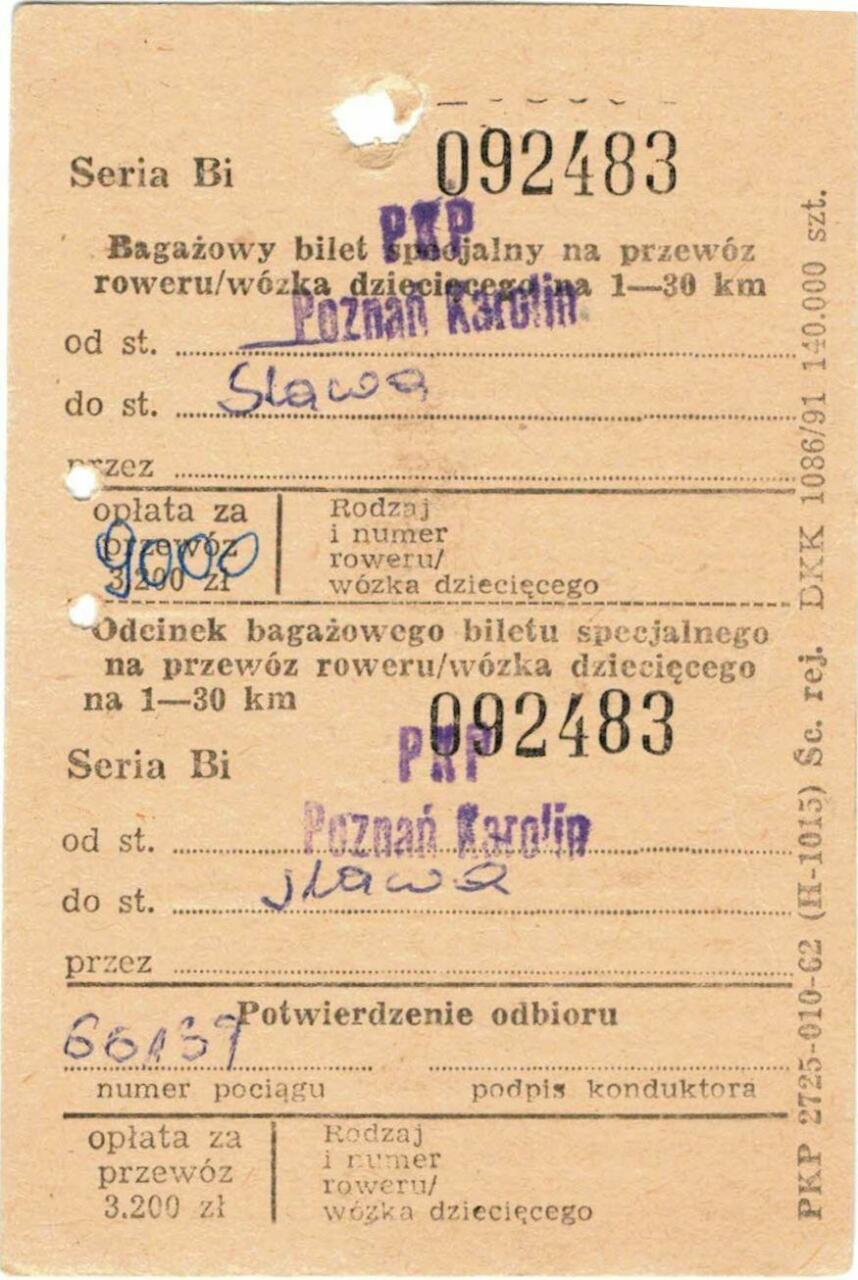 Seria Bi 092483
PKP
Bagażowy bilet specjalny na przewóz
roweru/wózka dziecięcego na 1—30 km
Poznań Karolin
od st.
do st. Sława
przez
opłata za
przewóz
3.200 zł
9000
Rodzaj
i numer
roweru/
wózka dziecięcego
Odcinek bagażowego biletu specjalnego
na przewóz roweru/wózka dziecięcego
na 1—30 km
092483
PKP
Seria Bi
Poznań Karolin
od st.
do st. Sława
przez
Potwierdzenie odbioru
66139
numer pociągu podpis konduktora
opłata za
przewóz
3.200 zł
Rodzaj
i numer
roweru/
wózka dziecięcego
PKP 2725-010-62 (H-1015) Śc. rej. DKK 1086/91 140.000 szt.